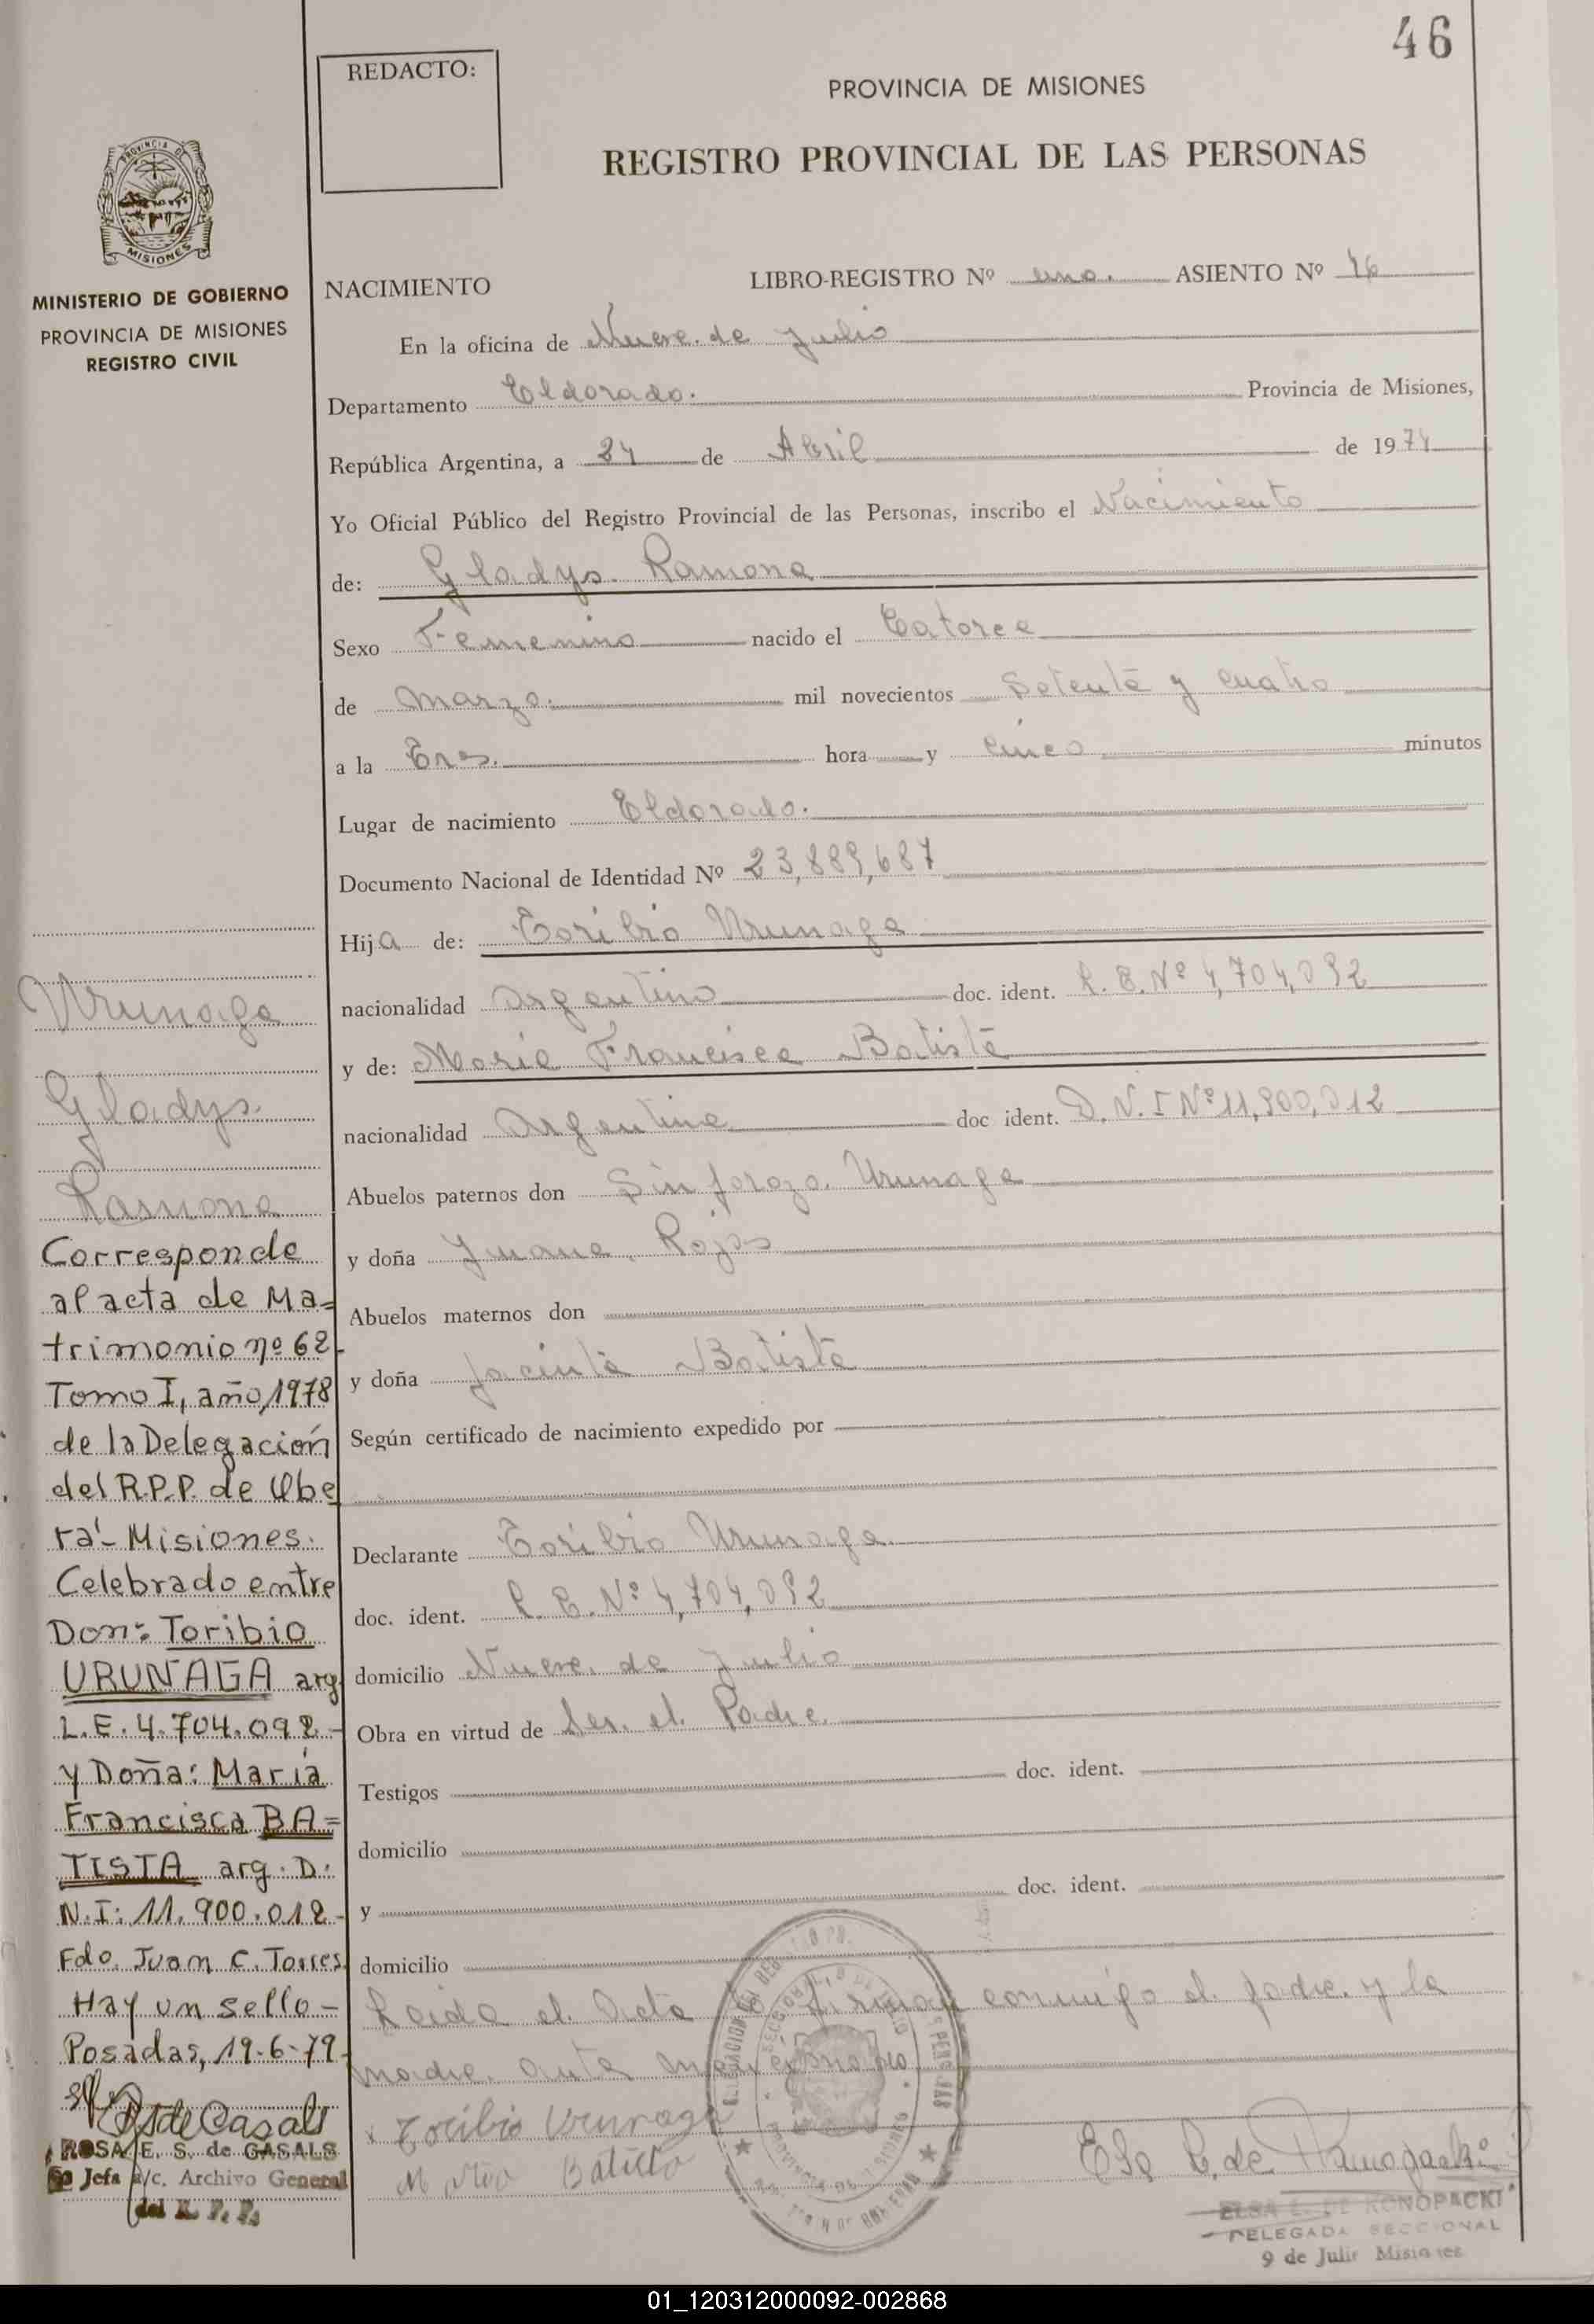 46
REDACTO:
PROVINCIA DE MISIONES
REGISTRO PROVINCIAL DE LAS PERSONAS
PROVINCIA DE
MISIONES
MINISTERIO DE GOBIERNO
PROVINCIA DE MISIONES
REGISTRO CIVIL
NACIMIENTO LIBRO-REGISTRO Nº uno. ASIENTO Nº 46
En la oficina de Nueve de Julio
Departamento Eldorado. Provincia de Misiones,
República Argentina, a 24 de Abril de 1974
Yo Oficial Público del Registro Provincial de las Personas, inscribo el Nacimiento
de: Gladys Ramona
Sexo Femenino nacido el Catorce
de Marzo. mil novecientos Setenta y cuatro
a la Tres. hora y cinco minutos
Lugar de nacimiento Eldorado.
Documento Nacional de Identidad Nº 23,889,687
Hija de: Toribio Urunaga
nacionalidad Argentino doc. ident. L. E. Nº 4,704,092
y de: Maria Francisca Batista
nacionalidad Argentina doc ident. D. N. I Nº 11,900,012
Abuelos paternos don Sinforozo Urunaga
y doña Juana Rojas
Abuelos maternos don
y doña Jacinta Batista
Según certificado de nacimiento expedido por
Declarante Toribio Urunaga
doc. ident. L. E. Nº 4,704,092
domicilio Nueve de Julio
Obra en virtud de Ser el Padre.
Testigos doc. ident.
domicilio
y doc. ident.
domicilio
Leida el Acta la firman conmigo el padre y la
madre. ante mi
x Toribio Urunaga
Batista
ELSA E. DE KONOPACKI
DELEGADA SECCIONAL
9 de Julio Misiones
Urunaga
Gladys
Ramona
Corresponde
al acta de Ma-
trimonio nº 62-
Tomo I, año 1978
de la Delegación
del R.P.P. de Obe
rá- Misiones.
Celebrado entre
Don: Toribio
URUNAGA arg
L.E. 4.704.092-
y Doña: María
Francisca BA=
TISTA arg. D.
N.I: 11.900.012-
Fdo. Juan C. Torres
Hay un sello-
Posadas, 19-6-79-
de Casals
ROSA E. S. de CASALS
Jefa a/c. Archivo General
del R. P. P.
01_120312000092-002868